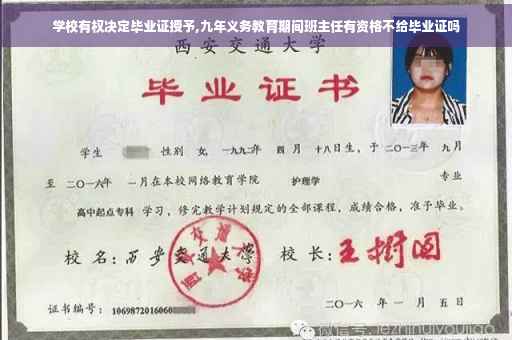 学校有权决定毕业证授予,九年义务教育期间班主任有资格不给毕业证吗
西安交通大学
毕业证书
学生 性别 女, 一九九二年 四月 十八日生, 于 二〇一三年 九月
至 二〇一六年 一月在本校网络教育学院 护理学 专业
高中起点专科 学习, 修完教学计划规定的全部课程, 成绩合格, 准予毕业。
校名: 西安交通大学 校长: 王树国
西安交通大学
证书编号: 1069872016060
二〇一六年 一月 五日
微信号: jiezhinuiyoujiao